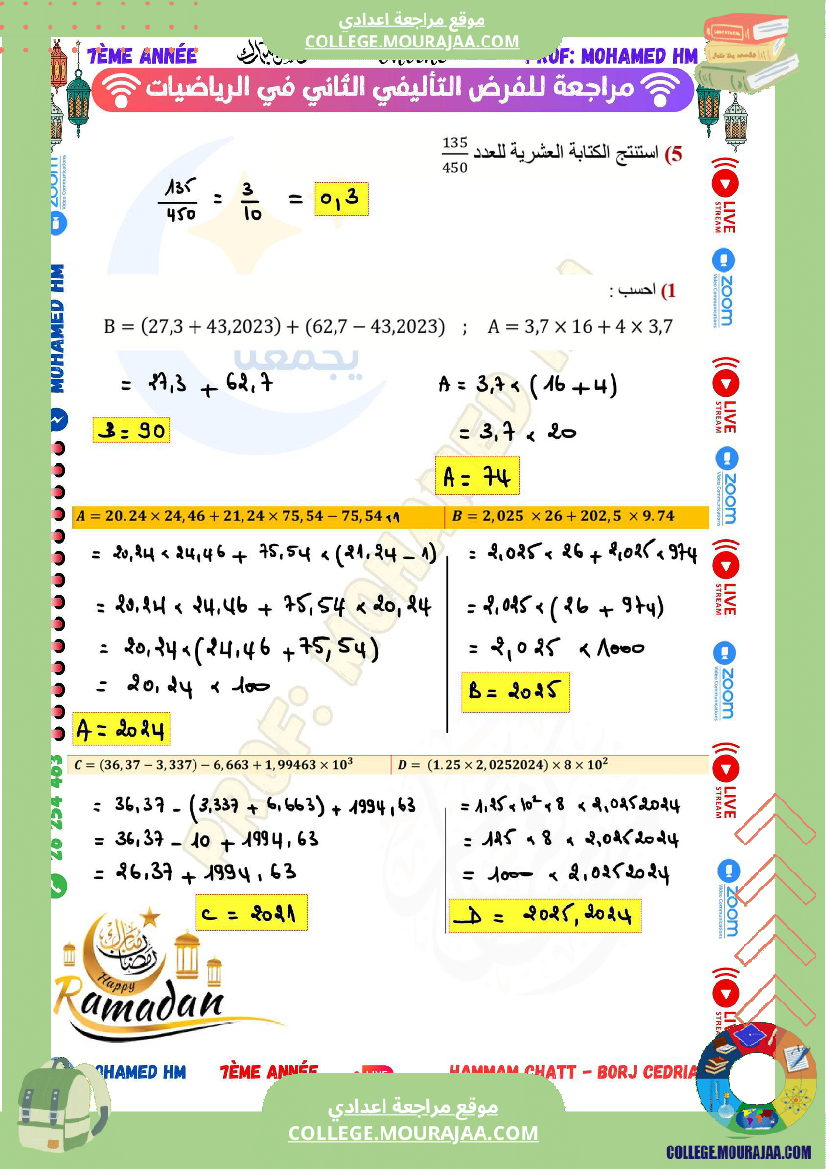 موقع مراجعة اعدادي
COLLEGE.MOURAJAA.COM
7ÈME ANNÉE
PROF: MOHAMED HM
مراجعة للفرض التأليفي الثاني في الرياضيات
5) استنتج الكتابة العشرية للعدد 135/450
135/450 = 3/10 = 0,3
1) احسب :
B = (27,3 + 43,2023) + (62,7 − 43,2023) ; A = 3,7 × 16 + 4 × 3,7
= 27,3 + 62,7
A = 3,7 × (16 + 4)
B = 90
= 3,7 × 20
A = 74
A = 20.24 × 24,46 + 21,24 × 75,54 − 75,54 ×1
B = 2,025 × 26 + 202,5 × 9.74
= 20,24 × 24,46 + 75,54 × (21,24 − 1)
= 2,025 × 26 + 2,025 × 974
= 20,24 × 24,46 + 75,54 × 20,24
= 2,025 × (26 + 974)
= 20,24 × (24,46 + 75,54)
= 2,025 × 1000
= 20,24 × 100
B = 2025
A = 2024
C = (36,37 − 3,337) − 6,663 + 1,99463 × 10³
D = (1.25 × 2,0252024) × 8 × 10²
= 36,37 − (3,337 + 6,663) + 1994,63
= 1,25 × 10² × 8 × 2,0252024
= 36,37 − 10 + 1994,63
= 125 × 8 × 2,0252024
= 26,37 + 1994,63
= 1000 × 2,0252024
C = 2021
D = 2025,2024
رمضان مبارك
Happy
Ramadan
MOHAMED HM
26 254 463
zoom
Video Communications
LIVE
STREAM
zoom
Video Communications
LIVE
STREAM
zoom
Video Communications
LIVE
STREAM
zoom
Video Communications
LIVE
STREAM
zoom
Video Communications
PROF: MOHAMED HM
يجمعنا
OHAMED HM
7ÈME ANNÉE
HAMMAM CHATT - BORJ CEDRIA
موقع مراجعة اعدادي
COLLEGE.MOURAJAA.COM
COLLEGE.MOURAJAA.COM